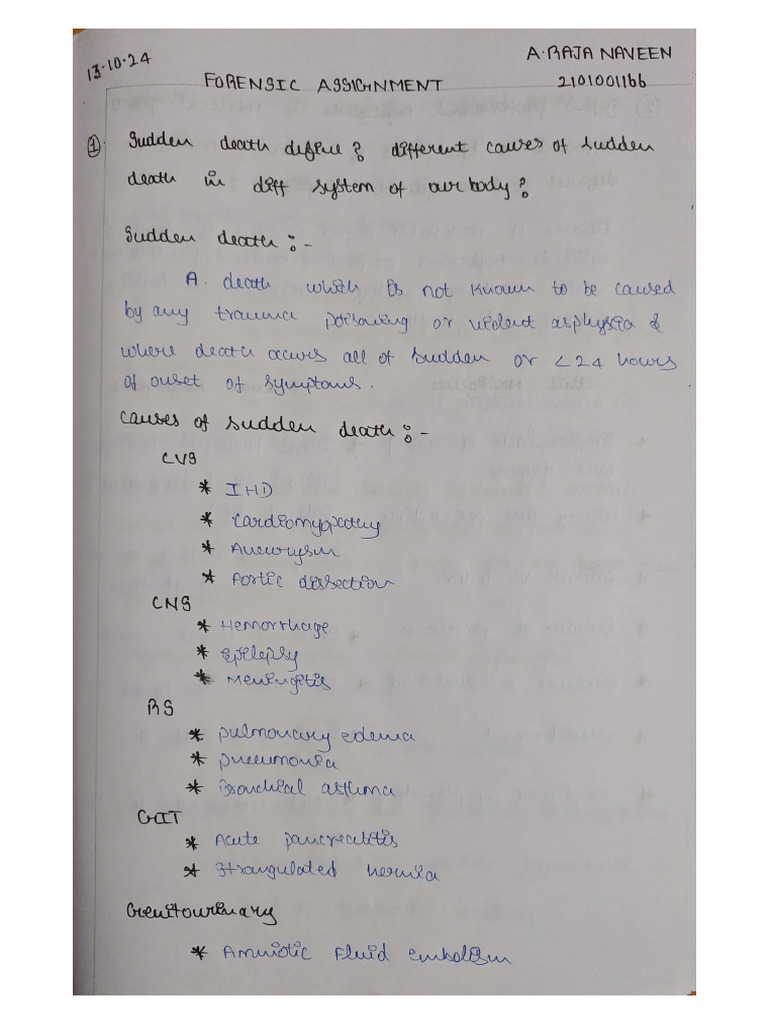 13-10-24
A. RAJA NAVEEN
FORENSIC ASSIGNMENT
2101001166
① Sudden death define? different causes of sudden
death in diff system of our body?
Sudden death :-
A. death which is not known to be caused
by any trauma poisoning or violent asphyxia &
where death occurs all of sudden or <24 hours
of onset of symptoms.
Causes of sudden death :-
CVS
* IHD
* Cardiomyopathy
* Aneurysm
* Aortic dissection
CNS
* Hemorrhage
* Epilepsy
* Meningitis
RS
* Pulmonary edema
* Pneumonia
* Bronchial asthma
GIT
* Acute pancreatitis
* Strangulated hernia
Genitourinary
* Amniotic Fluid embolism